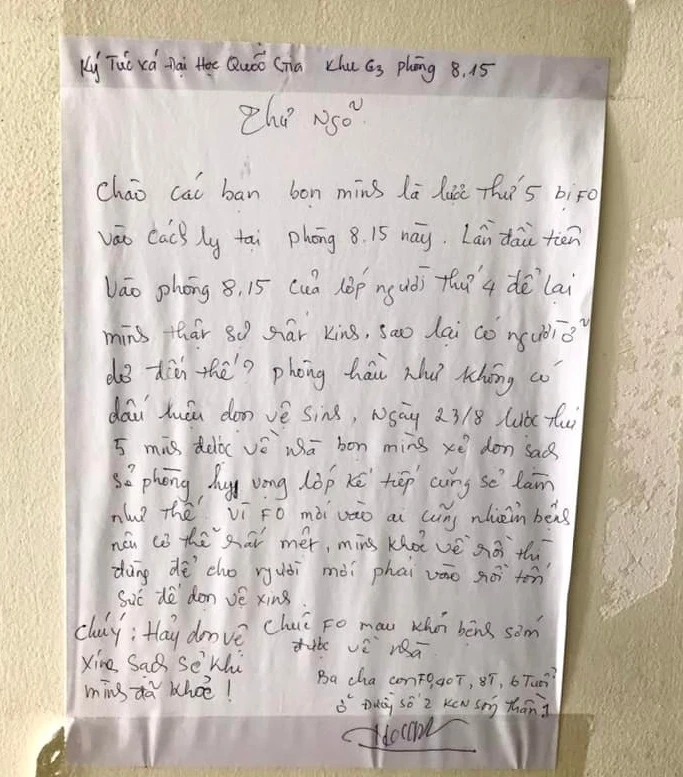 Ký Túc xá Đại Học Quốc Gia khu G3 phòng 8.15
Thư Ngỏ
Chào các bạn bọn mình là lược thứ 5 bị F0
vào cách ly tại phòng 8.15 này. Lần đầu tiên
vào phòng 8.15 của lớp người thứ 4 để lại
mình thật sự rất kinh, sao lại có người ở
dơ đến thế? phòng hầu như không có
dấu hiệu dọn vệ sinh, Ngày 23/8 lược thứ
5 mình được về nhà bọn mình xẻ dọn sạch
sẻ phòng hy vọng lớp kế tiếp cũng sẻ làm
như thế. Vì F0 mới vào ai cũng nhiễm bệnh
nên có thể rất mệt, mình khoẻ về rồi thì
đừng để cho người mới phải vào rồi tốn
sức để dọn vệ xinh.
Chúc F0 mau khỏi bệnh sớm
được về nhà
chú ý: Hảy dọn vệ
xinh sạch sẻ khi
mình đã khoẻ!
Ba cha con F0, 40T, 8T, 6 Tuổi
ở Đường số 2 KCN sóng thần 1